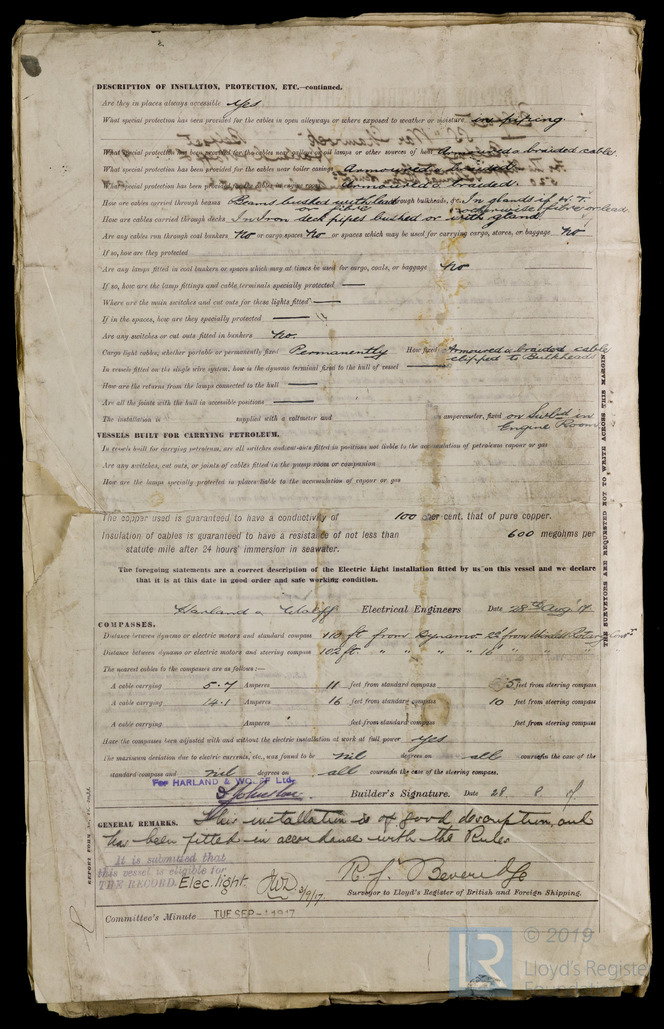 DESCRIPTION OF INSULATION, PROTECTION, ETC.—continued.
Are they in places always accessible yes
What special protection has been provided for the cables in open alleyways or where exposed to weather or moisture in piping
What special protection has been provided for the cables near galleys or oil lamps or other sources of heat Armoured & braided cable
What special protection has been provided for the cables near boiler casings Armoured & braided
What special protection has been provided Armoured & braided.
How are cables carried through beams Beams bushed with lead or fibre through bulkheads, &c. In glands if W.T.
otherwise fibre or lead.
How are cables carried through decks In Iron deck pipes bushed or with gland
Are any cables run through coal bunkers No or cargo spaces No or spaces which may be used for carrying cargo, stores, or baggage No
If so, how are they protected
Are any lamps fitted in coal bunkers or spaces which may at times be used for cargo, coals, or baggage No
If so, how are the lamp fittings and cable terminals specially protected —
Where are the main switches and cut outs for these lights fitted —
If in the spaces, how are they specially protected —
Are any switches or cut outs fitted in bunkers No.
Cargo light cables, whether portable or permanently fixed Permanently How fixed Armoured & braided cable
clipped to Bulkheads
In vessels fitted on the single wire system, how is the dynamo terminal fixed to the hull of vessel —
How are the returns from the lamps connected to the hull —
Are all the joints with the hull in accessible positions —
The installation is supplied with a voltmeter and an amperemeter, fixed on Swbd in
Engine Room
VESSELS BUILT FOR CARRYING PETROLEUM.
In vessels built for carrying petroleum, are all switches and cut-outs fitted in positions not liable to the accumulation of petroleum vapour or gas
Are any switches, cut outs, or joints of cables fitted in the pump room or companion
How are the lamps specially protected in places liable to the accumulation of vapour or gas
The copper used is guaranteed to have a conductivity of 100 per cent. that of pure copper.
Insulation of cables is guaranteed to have a resistance of not less than 600 megohms per
statute mile after 24 hours' immersion in seawater.
The foregoing statements are a correct description of the Electric Light installation fitted by us on this vessel and we declare
that it is at this date in good order and safe working condition.
Harland & Wolff Electrical Engineers Date 28th Aug '17.
COMPASSES.
Distance between dynamo or electric motors and standard compass 110 ft from Dynamo 22' from Rotary
Distance between dynamo or electric motors and steering compass 102 ft. " " " " 16' " " "
The nearest cables to the compasses are as follows:—
A cable carrying 5.7 Amperes 11 feet from standard compass 5 feet from steering compass
A cable carrying 14.1 Amperes 16 feet from standard compass 10 feet from steering compass
A cable carrying Amperes feet from standard compass feet from steering compass
Have the compasses been adjusted with and without the electric installation at work at full power yes
The maximum deviation due to electric currents, etc., was found to be nil degrees on all course in the case of the
standard compass and nil degrees on all courses in the case of the steering compass.
For HARLAND & WOLFF Ltd.
Builder's Signature. Date 28 8 17.
GENERAL REMARKS. This installation is of good description, and
has been fitted in accordance with the Rules
It is submitted that
this vessel is eligible for
THE RECORD. Elec. light. 3/9/17
R. J. Beveridge
Surveyor to Lloyd's Register of British and Foreign Shipping.
Committee's Minute TUE SEP -4 1917
THE SURVEYORS ARE REQUESTED NOT TO WRITE ACROSS THIS MARGIN
© 2019
Lloyd's Register
Foundation